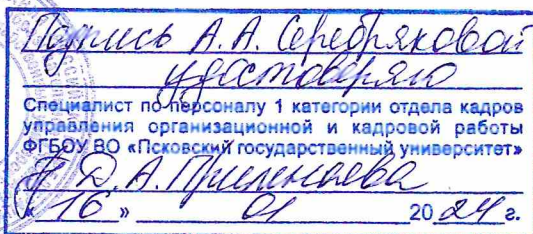 Подпись А.А. Серебряковой
удостоверяю
Специалист по персоналу 1 категории отдела кадров
управления организационной и кадровой работы
ФГБОУ ВО «Псковский государственный университет»
Д.А.
«16» 01 2024 г.